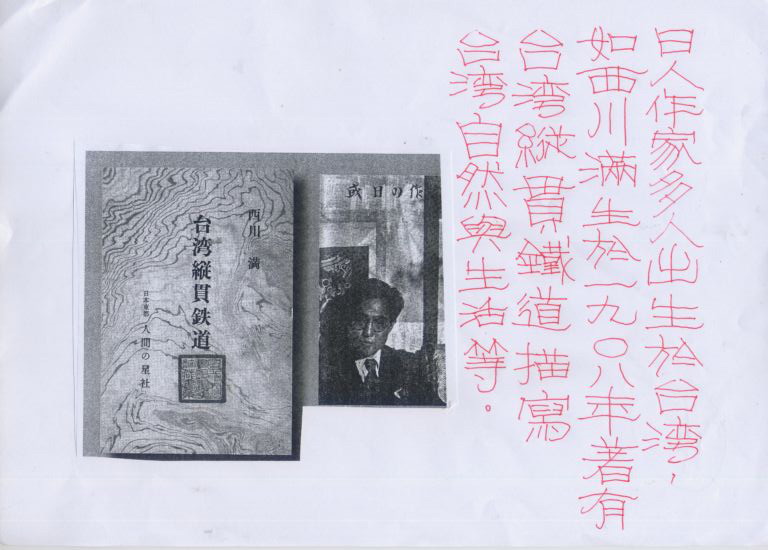 日人作家多人出生於台湾，
如西川滿生於一九〇八年著有
台湾縱貫鐵道描寫
台湾自然與生活等。
作の日或
西川 満
台湾縦貫鉄道
日本東都 人間の星社